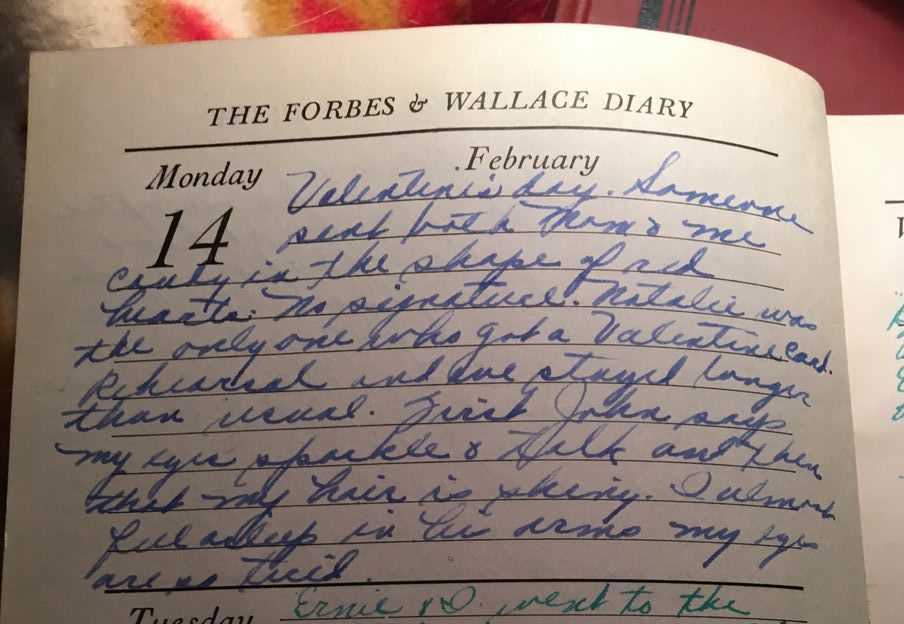 THE FORBES & WALLACE DIARY
Monday February
14
Valentine's day. Someone
sent both Mom & me
candy in the shape of red
hearts. No signature. Natalie was
the only one who got a Valentine card.
Rehearsal and we stayed longer
than usual. First John says
my eyes sparkle & talk and then
that my hair is shiny. I almost
feel asleep in his arms my eyes
are so tired.
Tuesday Ernie & I went to the